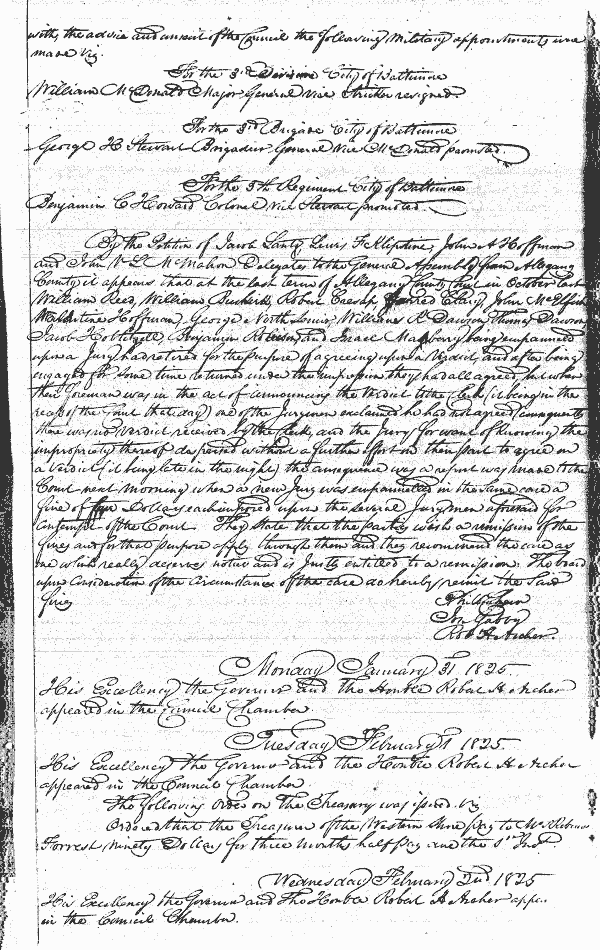 with the advice and consent of the Council the following Military appointments were
made viz.
For the 3rd Division City of Baltimore
William McDonald Major General Vice Stricker resigned.
For the 3rd Brigade City of Baltimore
George H Stewart Brigadier General Vice McDonald promoted.
For the 5th Regiment City of Baltimore
Benjamin C Howard Colonel Vice Stewart promoted.
By the Petition of Jacob Lantz, Lewis F Klipstine, John A Hoffman
and John V L McMahon Delegates to the General Assembly from Allegany
County it appears that at the last term of Allegany County Court in October last
William Reed, William Ricketts, Robert Cresap, John McElfish
Valentine Hoffman, George North William R Dawson Thomas Dawson
Jacob Hoblitzell, Benjamin Robison and Israel being empannelled
upon a Jury had retired for the purpose of agreeing upon a Verdict, and after being
engaged for some time returned under the impression they had all agreed, but when
their Foreman was in the act of announcing the Verdict to the Clerk (it being in the
recess of the Court that day) one of the Jurymen exclaimed he had not agreed, consequently
there was no Verdict received by the Clerk, and the Jury for want of knowing the
impropriety thereof dispersed without a further effort on their part to agree on
a Verdict (it being late in the night) the consequence was a report was made to the
Court next morning when a new Jury was empannelled in the same case a
fine of Dollars each imposed upon the several Jurymen aforesaid for
contempt of the Court. They state that the parties wish a remission of the
fines and for that purpose apply through them and they recommend the case as
one which really deserves notice and is Justly entitled to a remission. The board
upon Consideration of the Circumstances of the case do hereby remit the Said
fines
Jno Gabby
Rob H Archer.
Monday January 31 1825.
His Excellency the Governor and The Honble Robert H Archer
appeared in the Council Chamber
Tuesday February 1 1825.
His Excellency the Governor and the Honble Robert H Archer
appeared in the Council Chamber.
The following order on The Treasury was issued. Viz
Ordered that the Treasurer of the Western Shore pay to Mrs Rebecca
Forrest ninety Dollars for three months half pay due the 1st Inst
Wednesday February 2nd 1825
His Excellency the Governor and The Honble Robert H Archer appe.
in the Council Chamber.